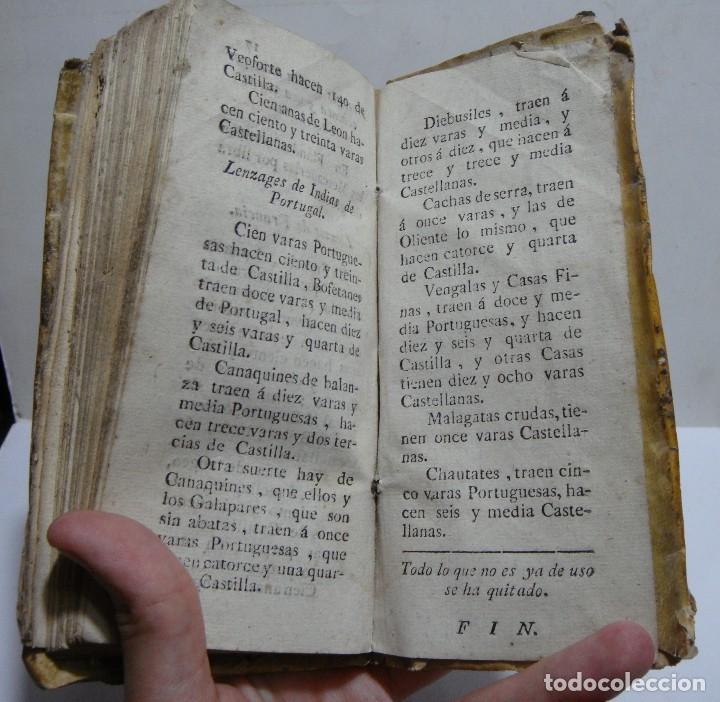 Veoforte hacen 140 de
Castilla.
Cien anas de Leon ha-
cen ciento y treinta varas
Castellanas.
Lenzages de Indias de
Portugal.
Cien varas Portugue-
sas hacen ciento y trein-
ta de Castilla, Bofetanes
traen doce varas y media
de Portugal, hacen diez
y seis varas y quarta de
Castilla.
Canaquines de balan-
za traen á diez varas y
media Portuguesas, ha-
cen trece varas y dos ter-
cias de Castilla.
Otra suerte hay de
Canaquines, que ellos y
los Galapares, que son
sin abatas, traen á once
varas Portuguesas, que
cen catorce y una quar-
Castilla.
Diebusiles, traen á
diez varas y media, y
otros á diez, que hacen á
trece y trece y media
Castellanas.
Cachas de serra, traen
á once varas, y las de
Oliente lo mismo, que
hacen catorce y quarta
de Castilla.
Vengalas y Casas Fi-
nas, traen á doce y me-
dia Portuguesas, y hacen
diez y seis y quarta de
Castilla, y otras Casas
tienen diez y ocho varas
Castellanas.
Malagatas crudas, tie-
nen once varas Castella-
nas.
Chautates, traen cin-
co varas Portuguesas, ha-
cen seis y media Caste-
llanas.
Todo lo que no es ya de uso
se ha quitado.
FIN.
todocoleccion